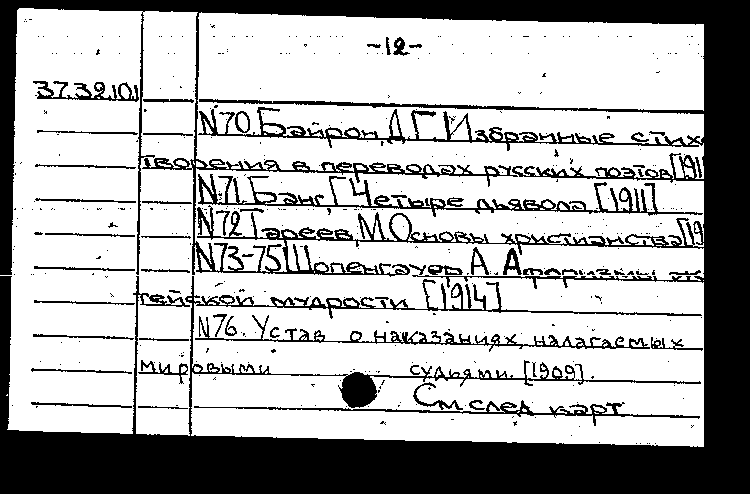 -12-
37.39.101
N70. Байрон, Д.Г. Избранные стихо
творения в переводах русских поэтов [191
N71. Банг, Г. Четыре дьявола. [1911]
N72 Гареев, М. Основы христианства [19
N73-75 Шопенгауер, А. Афоризмы жи
тейской мудрости [1914]
N76. Устав о наказаниях, налагаемых
мировыми судьями. [1909].
См. след карт